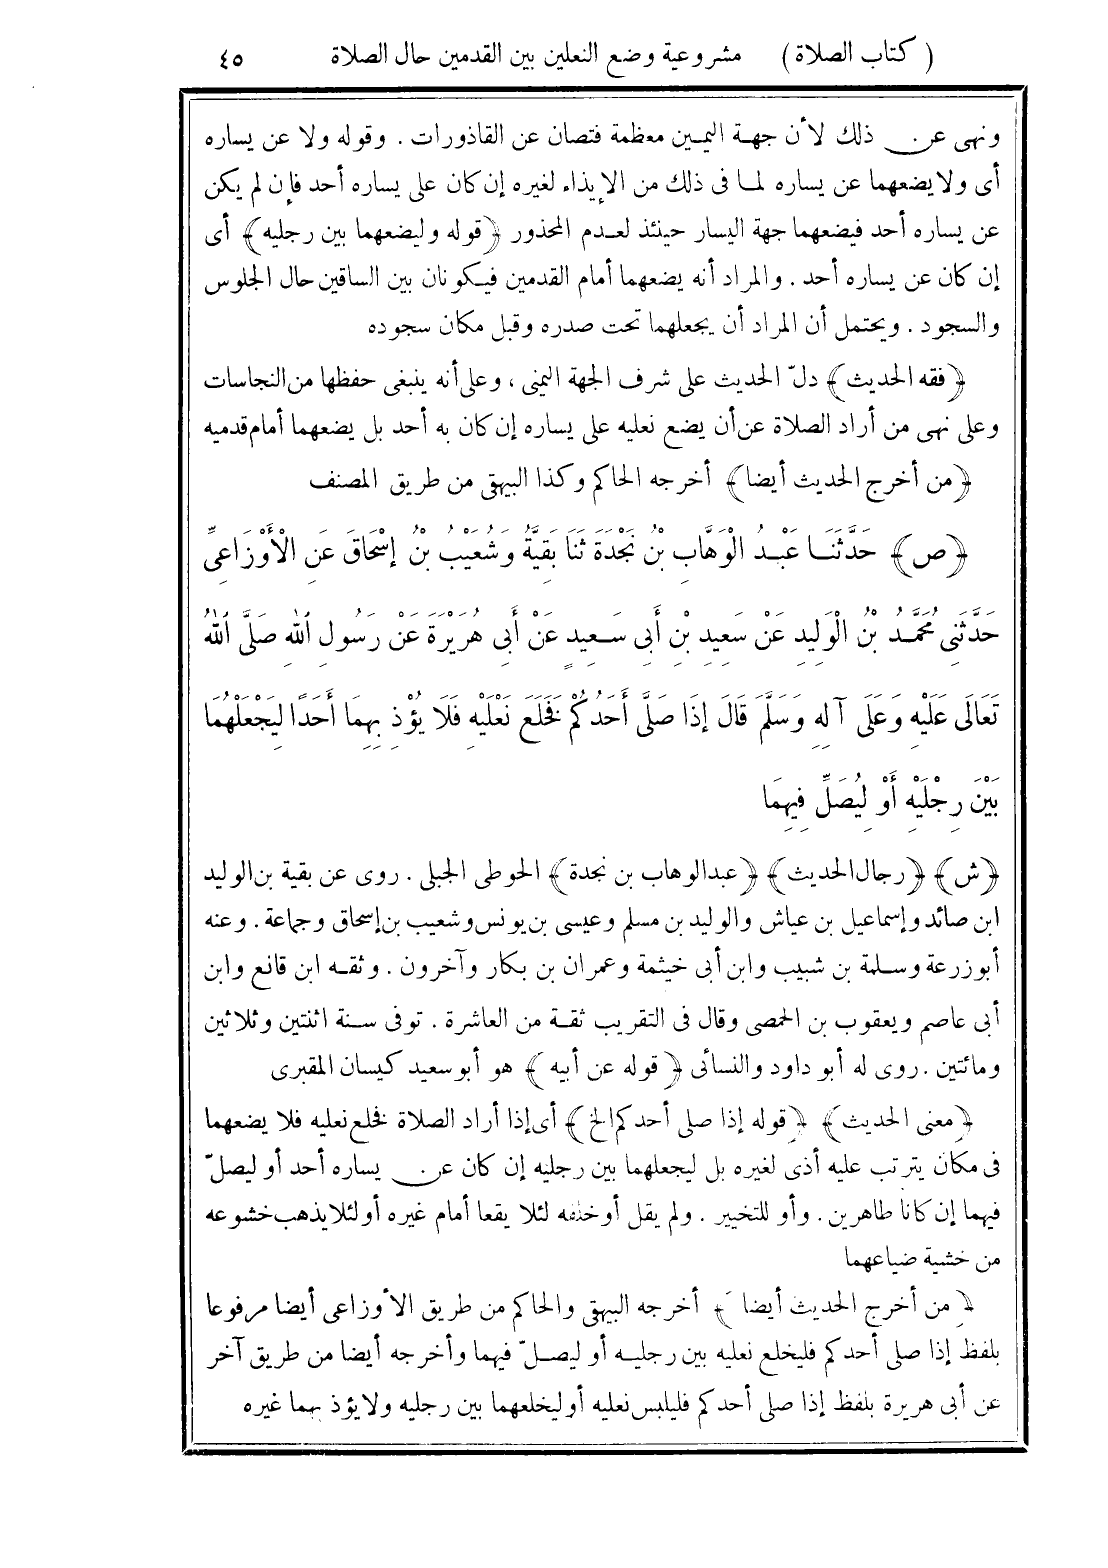 ( كتاب الصلاة ) مشروعية وضع النعلين بين القدمين حال الصلاة ٤٥
ونهى عن ذلك لأن جهة اليمين معظمة فتصان عن القاذورات . وقوله ولا عن يساره
أى ولا يضعهما عن يساره لما فى ذلك من الإيذاء لغيره إن كان على يساره أحد فإن لم يكن
عن يساره أحد فيضعهما جهة اليسار حينئذ لعدم المحذور ﴿قوله وليضعهما بين رجليه﴾ أى
إن كان عن يساره أحد . والمراد أنه يضعهما أمام القدمين فيكونان بين الساقين حال الجلوس
والسجود . ويحتمل أن المراد أن يجعلهما تحت صدره وقبل مكان سجوده
﴿فقه الحديث﴾ دلّ الحديث على شرف الجهة اليمنى ، وعلى أنه ينبغى حفظها من النجاسات
وعلى نهى من أراد الصلاة عن أن يضع نعليه على يساره إن كان به أحد بل يضعهما أمام قدميه
﴿من أخرج الحديث أيضا﴾ أخرجه الحاكم وكذا البيهقى من طريق المصنف
﴿ص﴾ حَدَّثَنَا عَبْدُ الْوَهَّابِ بْنُ نَجْدَةَ ثَنَا بَقِيَّةُ وَشُعَيْبُ بْنُ إِسْحَاقَ عَنِ الْأَوْزَاعِىِّ
حَدَّثَنِى مُحَمَّدُ بْنُ الْوَلِيدِ عَنْ سَعِيدِ بْنِ أَبِى سَعِيدٍ عَنْ أَبِى هُرَيْرَةَ عَنْ رَسُولِ اللهِ صَلَّى اللهُ
تَعَالَى عَلَيْهِ وَعَلَى آلِهِ وَسَلَّمَ قَالَ إِذَا صَلَّى أَحَدُكُمْ فَخَلَعَ نَعْلَيْهِ فَلَا يُؤْذِ بِهِمَا أَحَدًا لِيَجْعَلْهُمَا
بَيْنَ رِجْلَيْهِ أَوْ لِيُصَلِّ فِيهِمَا
﴿ش﴾ ﴿رجال الحديث﴾ ﴿عبد الوهاب بن نجدة﴾ الحوطى الجبلى . روى عن بقية بن الوليد
ابن صائد وإسماعيل بن عياش والوليد بن مسلم وعيسى بن يونس وشعيب بن إسحاق وجماعة . وعنه
أبو زرعة وسلمة بن شبيب وابن أبى خيثمة وعمران بن بكار وآخرون . وثقه ابن قانع وابن
أبى عاصم ويعقوب بن الحمصى وقال فى التقريب ثقة من العاشرة . توفى سنة اثنتين وثلاثين
ومائتين . روى له أبو داود والنسائى ﴿ قوله عن أبيه ﴾ هو أبو سعيد كيسان المقبرى
﴿معنى الحديث﴾ ﴿قوله إذا صلى أحدكم الخ﴾ أى إذا أراد الصلاة فخلع نعليه فلا يضعهما
فى مكان يترتب عليه أذى لغيره بل ليجعلهما بين رجليه إن كان عن يساره أحد أو ليصلّ
فيهما إن كانا طاهرين . وأو للتخيير . ولم يقل أو خلفه لئلا يقعا أمام غيره أو لئلا يذهب خشوعه
من خشية ضياعهما
﴿من أخرج الحديث أيضا﴾ أخرجه البيهقى والحاكم من طريق الأوزاعى أيضا مرفوعا
بلفظ إذا صلى أحدكم فليخلع نعليه بين رجليه أو ليصلّ فيهما وأخرجه أيضا من طريق آخر
عن أبى هريرة بلفظ إذا صلى أحدكم فليلبس نعليه أو ليخلعهما بين رجليه ولا يؤذ بهما غيره